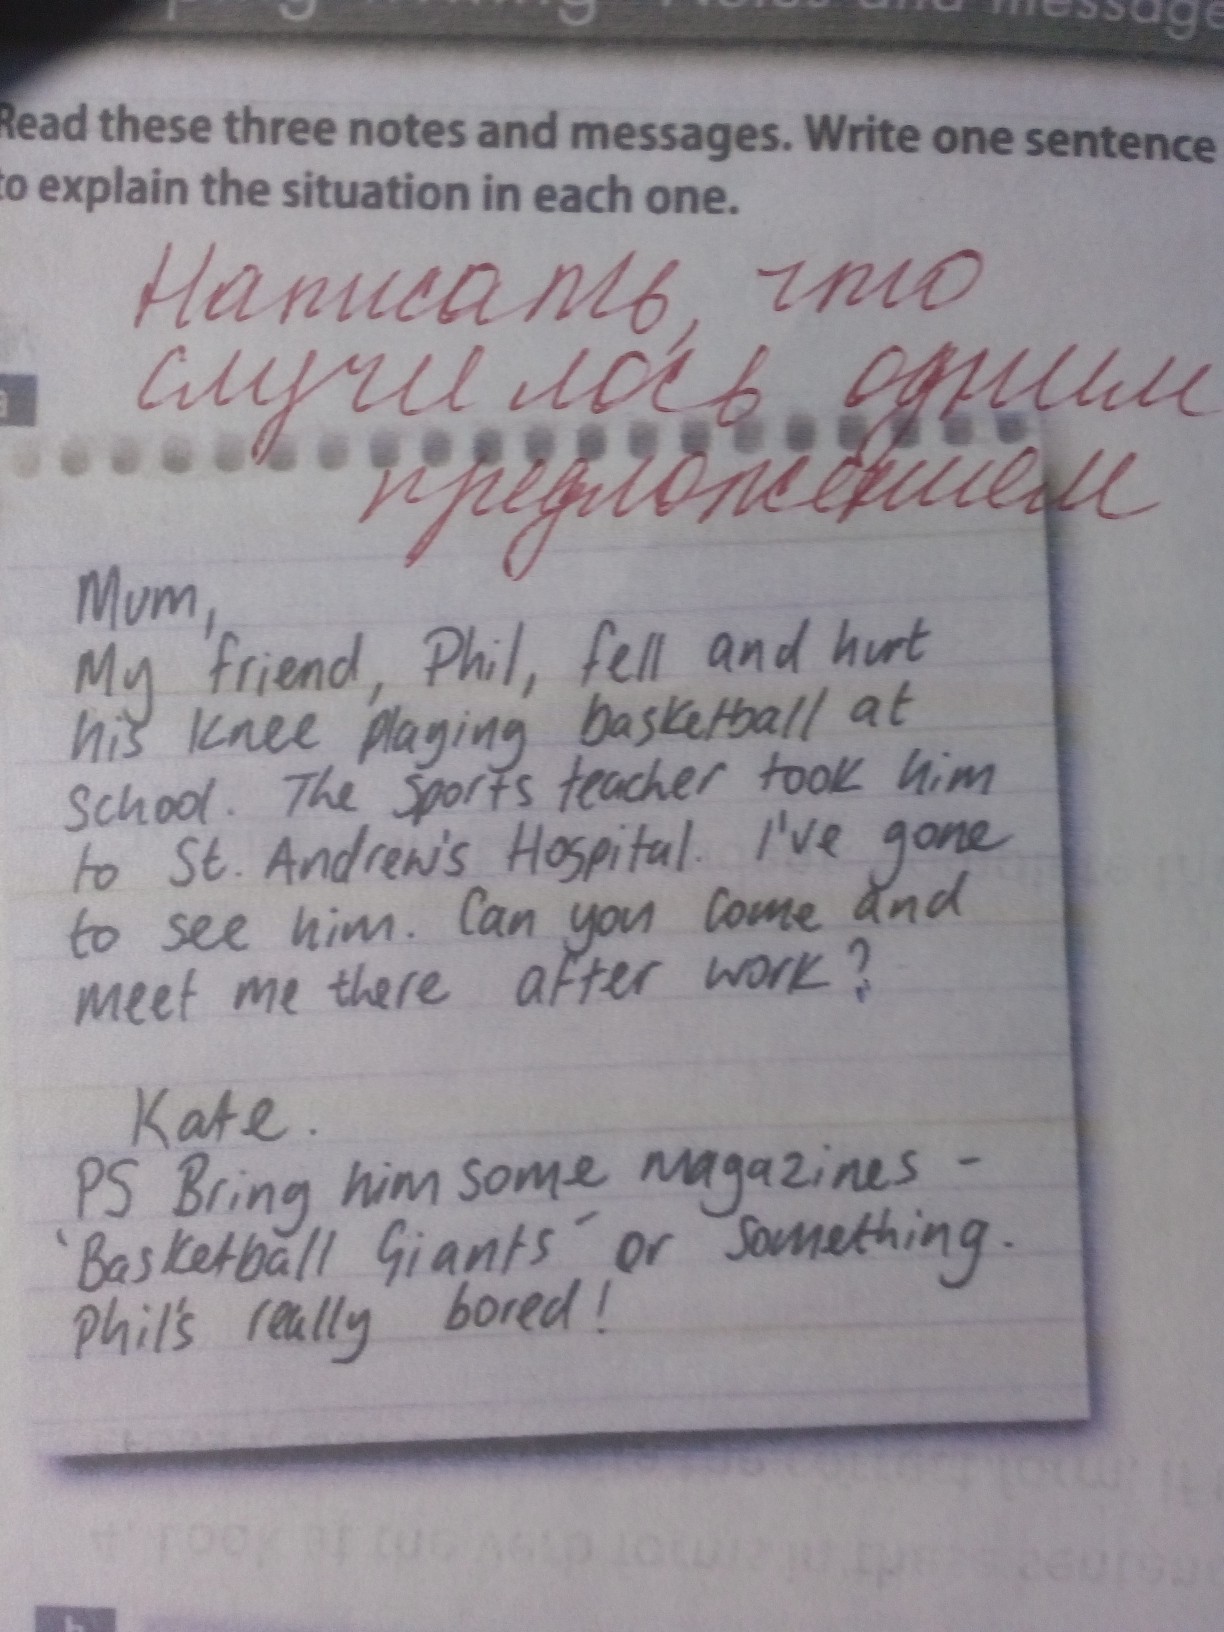 Notes and message
Read these three notes and messages. Write one sentence
to explain the situation in each one.
Написать, что
случилось одним
предложением
a
Mum,
My friend, Phil, fell and hurt
his knee playing basketball at
school. The sports teacher took him
to St. Andrew's Hospital. I've gone
to see him. Can you come and
meet me there after work?
Kate.
PS Bring him some magazines -
'Basketball Giants' or something.
Phil's really bored!
b